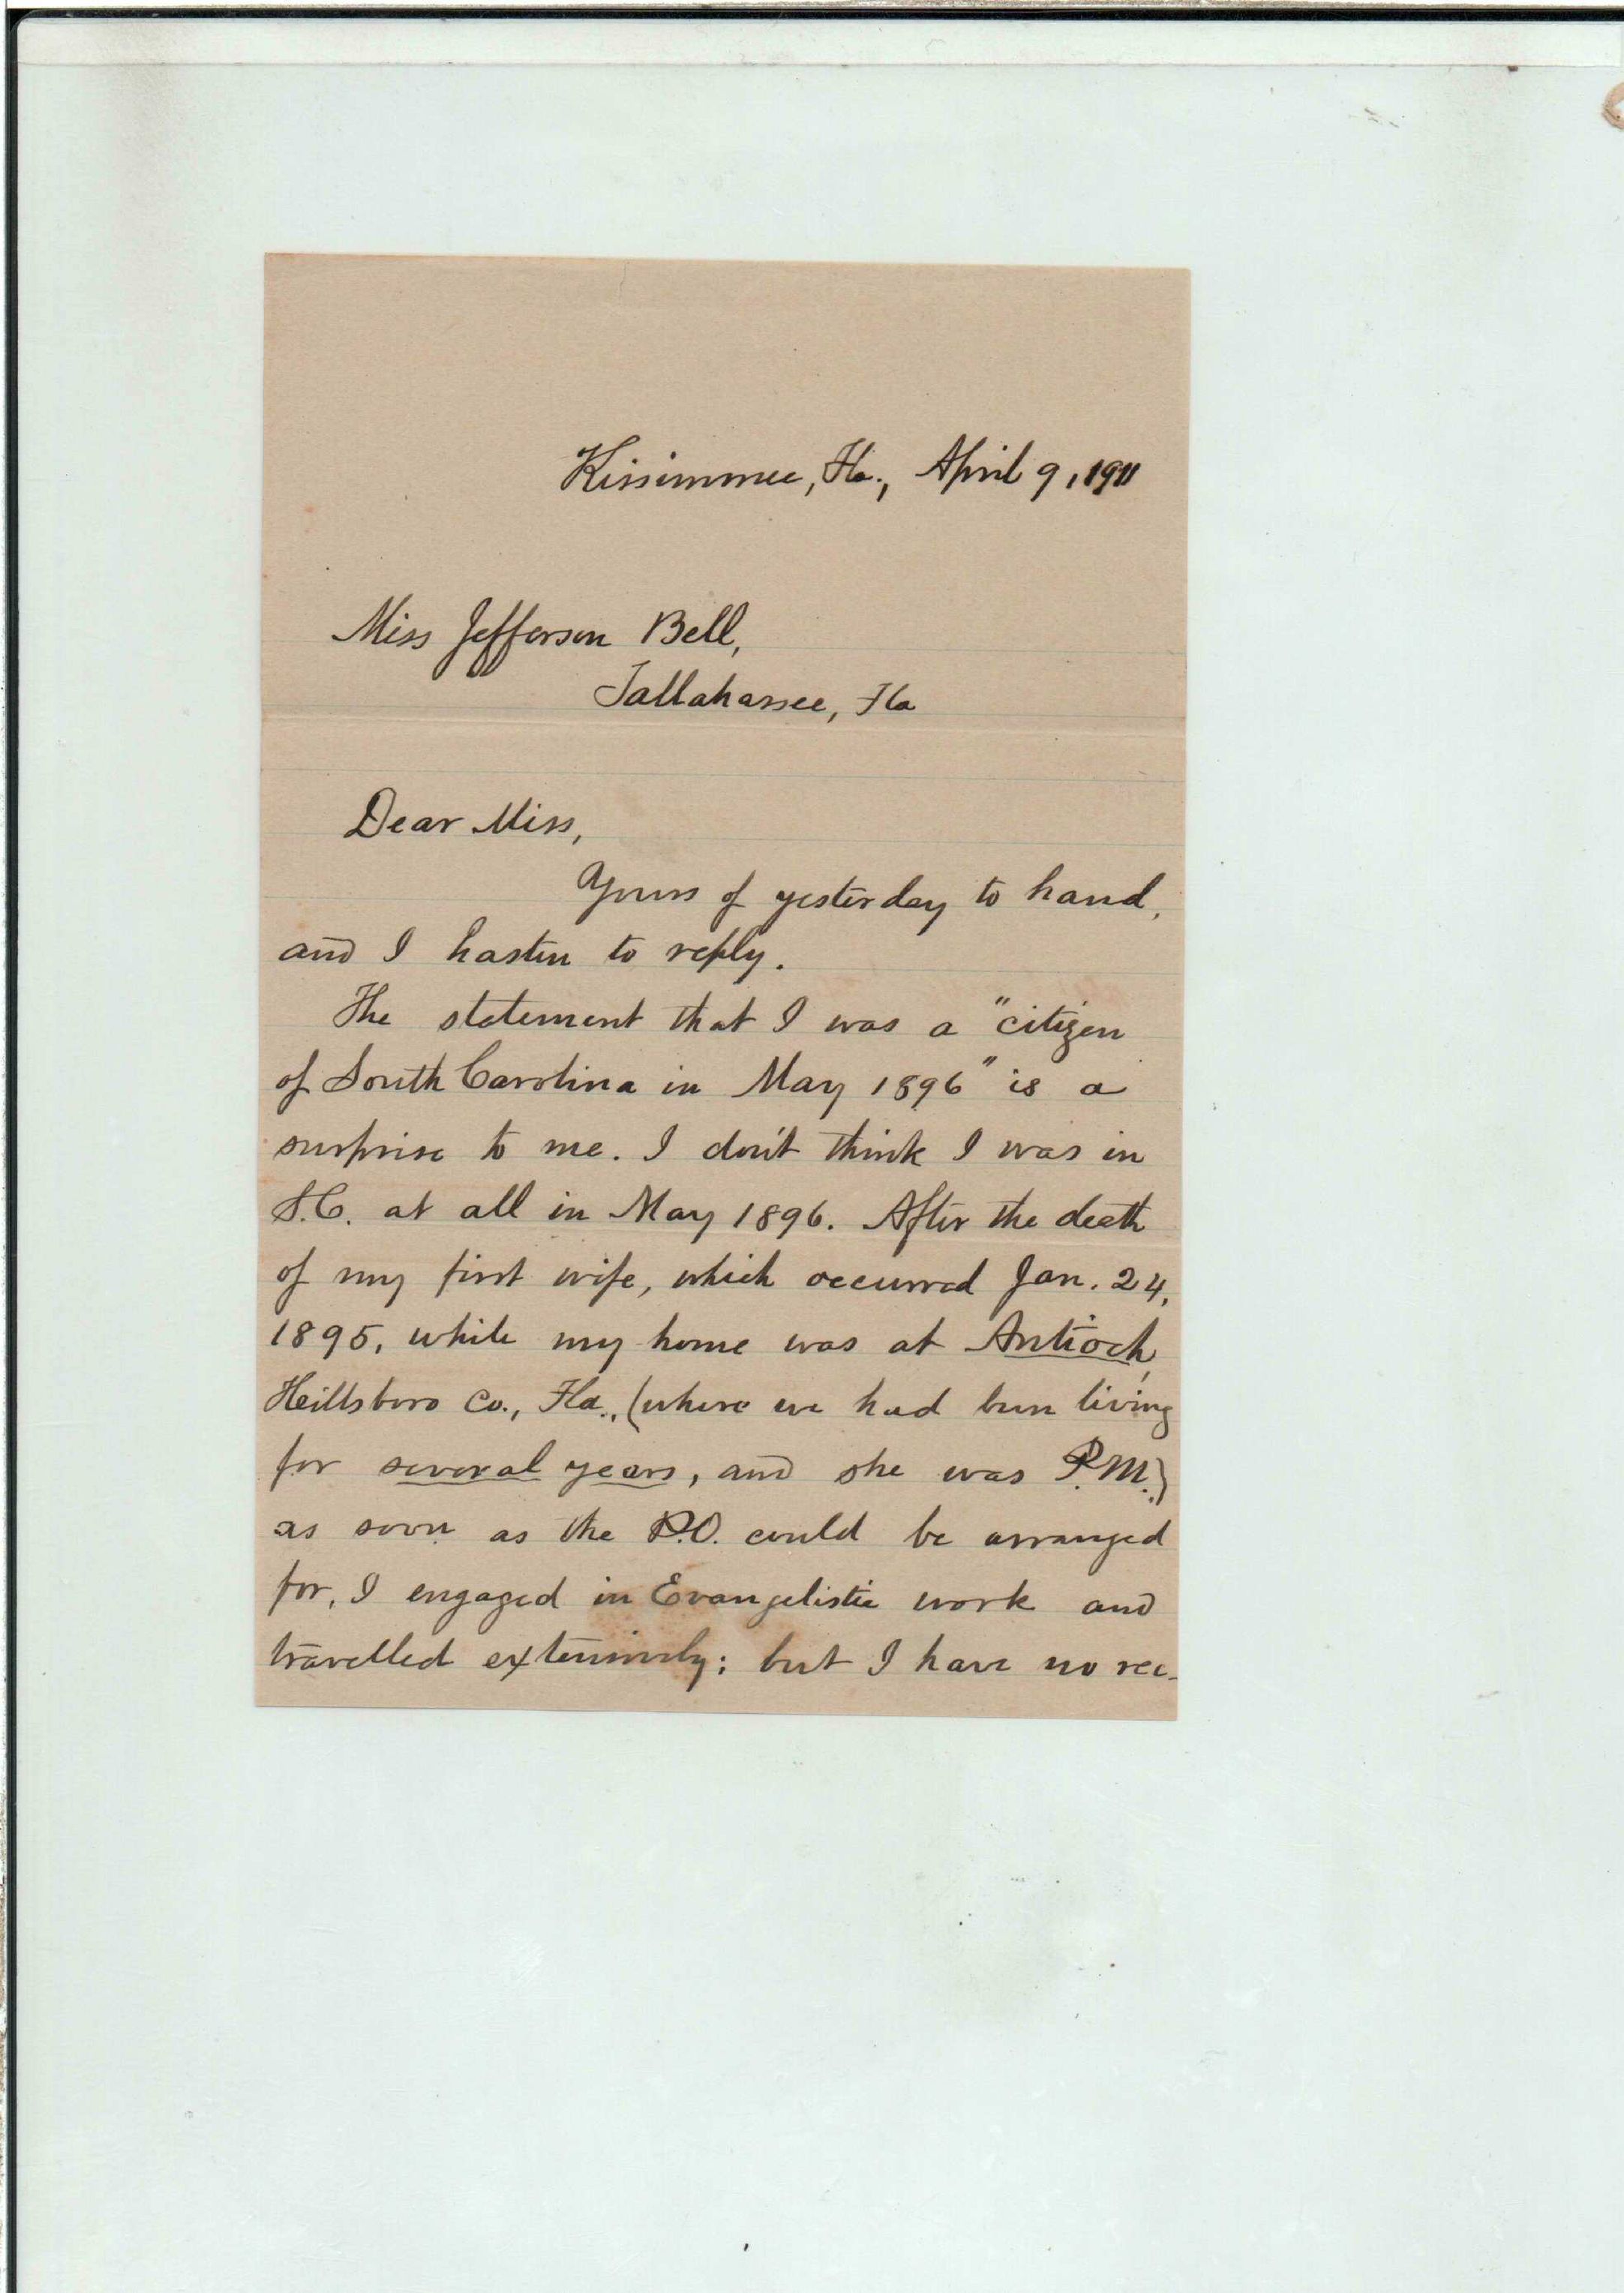 Kissimmee, Fla., April 9, 1911
Miss Jefferson Bell,
Tallahassee, Fla
Dear Miss,
Yours of yesterday to hand,
and I hasten to reply.
The statement that I was a "citizen
of South Carolina in May 1896" is a
surprise to me. I don't think I was in
S.C. at all in May 1896. After the death
of my first wife, which occurred Jan. 24,
1895, while my home was at Antioch,
Hillsboro Co., Fla., (where we had been living
for several years, and she was P.M.)
as soon as the P.O. could be arranged
for, I engaged in Evangelistic work and
travelled extensively; but I have no rec-